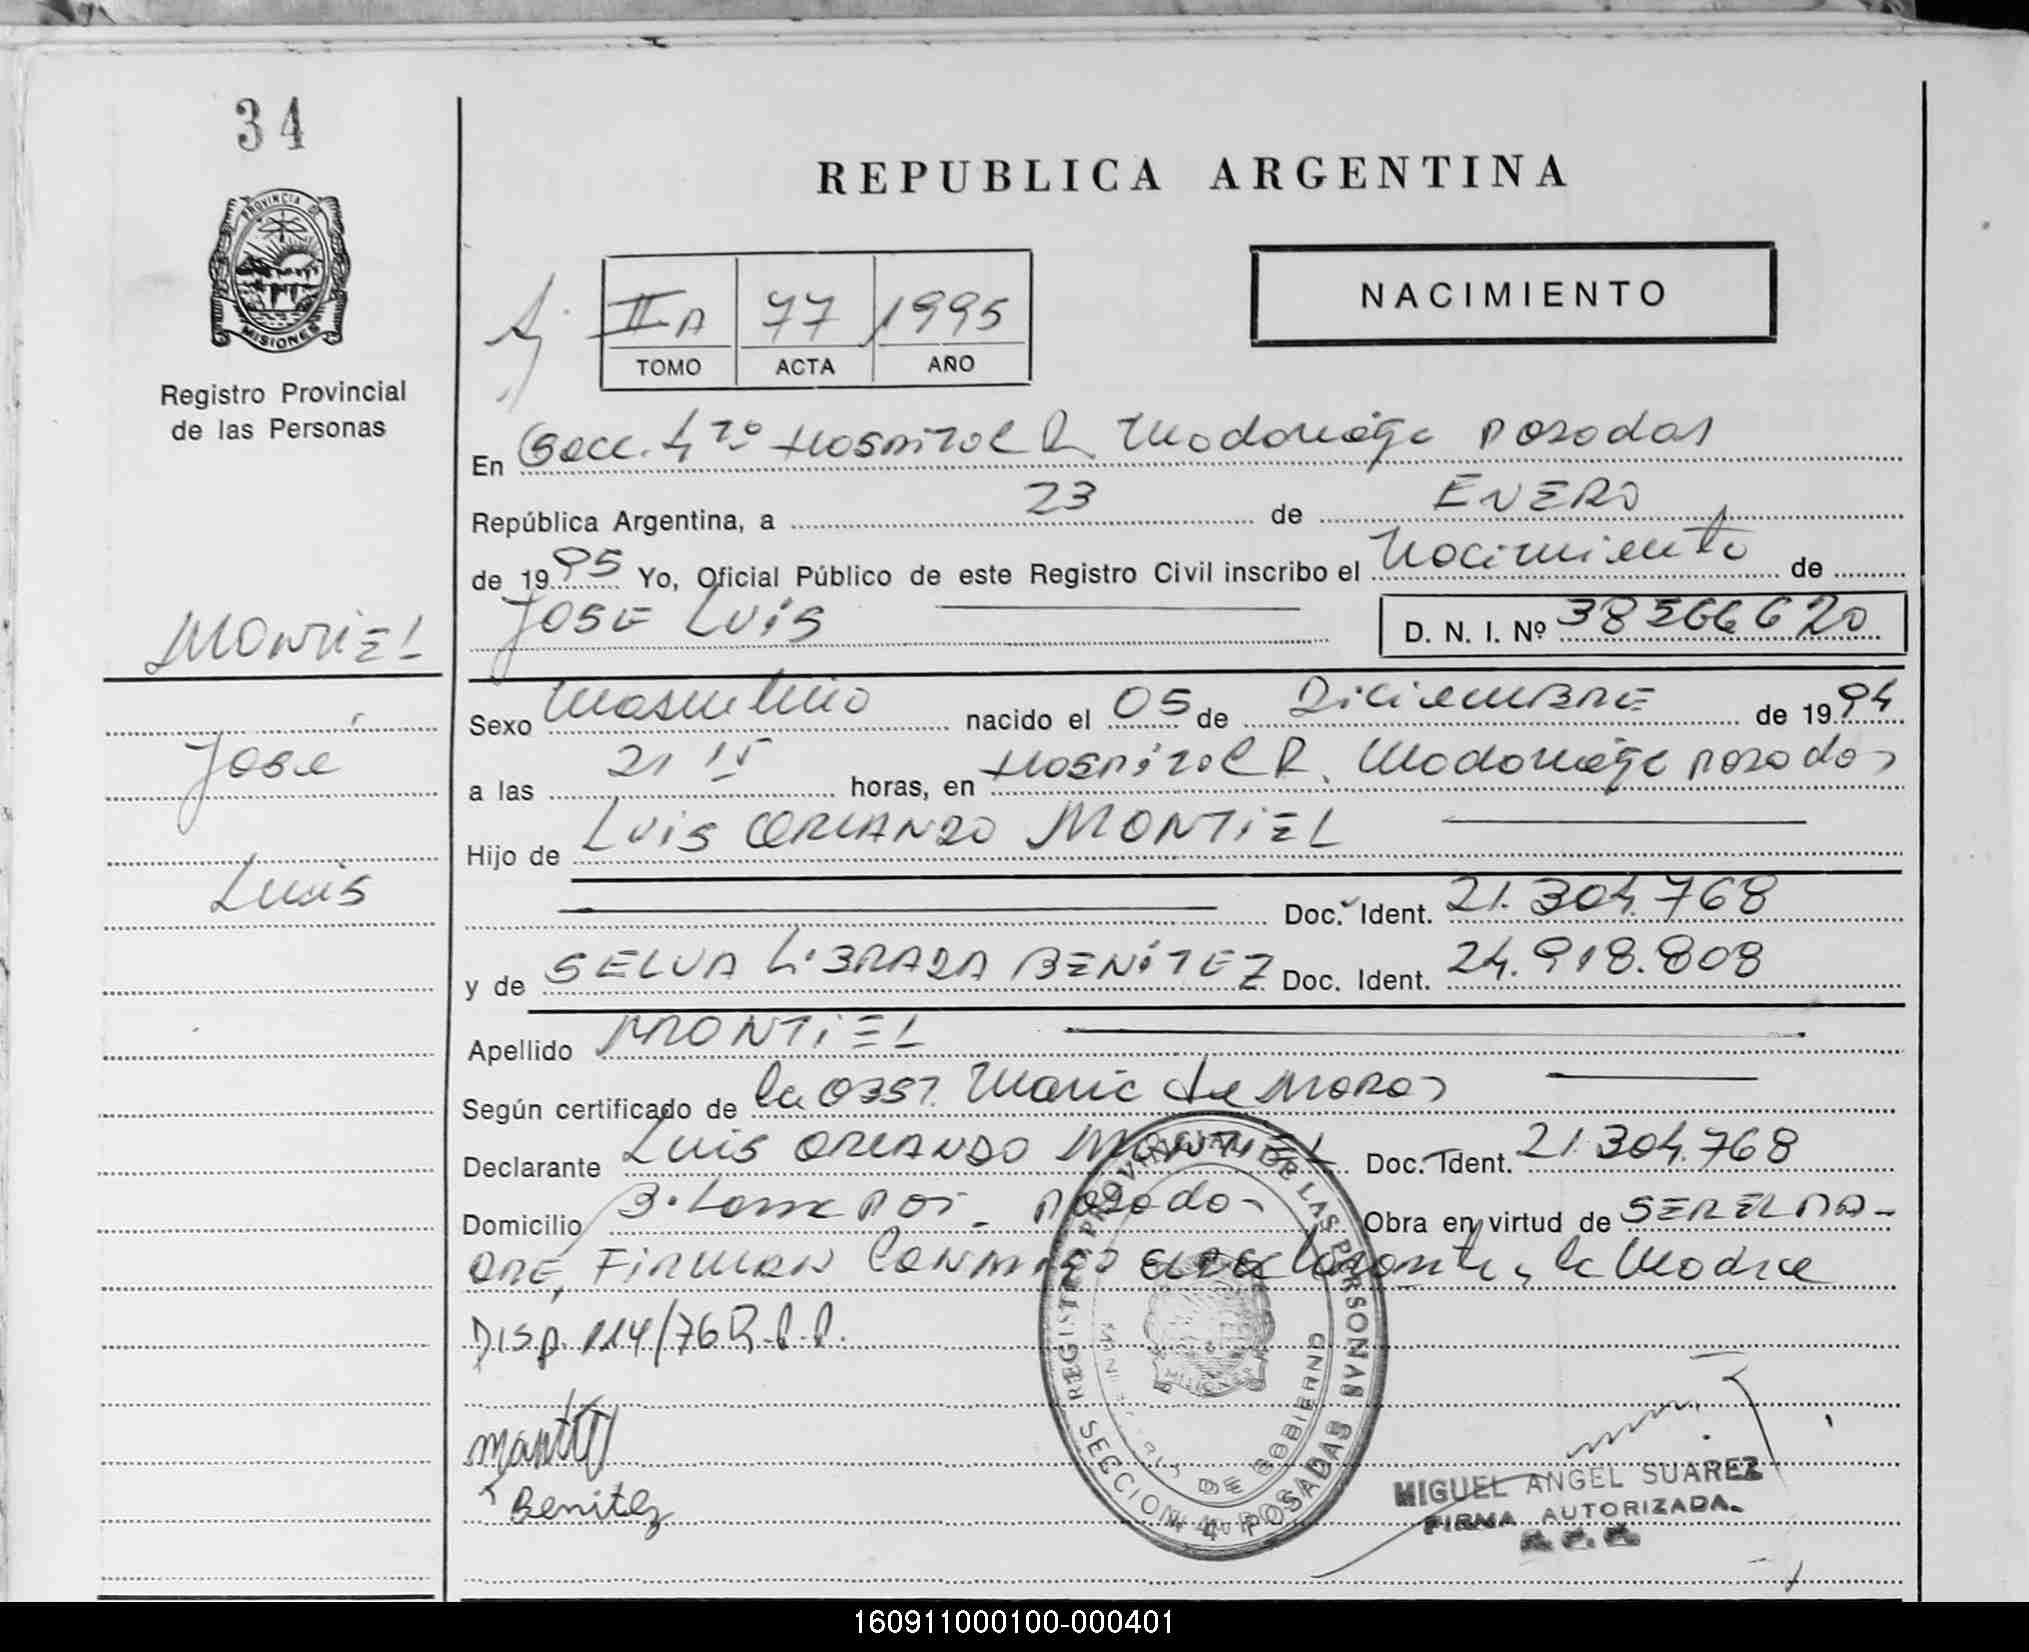 34
PROVINCIA DE
MISIONES
Registro Provincial
de las Personas
MONTIEL
José
Luis
REPUBLICA ARGENTINA
NACIMIENTO
II A 77 1995
TOMO ACTA AÑO
En Secc. 4ta Hospital R. Madariaga Posadas
República Argentina, a 23 de ENERO
de 1995 Yo, Oficial Público de este Registro Civil inscribo el Nacimiento de
JOSE LUIS D. N. I. Nº 38566620
Sexo Masculino nacido el 05 de DiciemBRE de 1994
a las 21 15 horas, en Hospital R. Madariaga Posadas
Hijo de LUIS ORLANDO MONTIEL
Doc. Ident. 21.304.768
y de SELVA LIBRADA BENÍTEZ Doc. Ident. 24.918.808
Apellido MONTIEL
Según certificado de la OBST. Maria de MORAS
Declarante LUIS ORLANDO MONTIEL Doc. Ident. 21.304.768
Domicilio Posadas Obra en virtud de SER EL PA-
DRE, Firman Conmigo el Declarante y la Madre
Disp. 114/76 R.P.P.
Benitez
REGISTRO PROVINCIAL DE LAS PERSONAS
MINISTERIO DE GOBIERNO
MISIONES
SECCION 4 POSADAS
MIGUEL ANGEL SUAREZ
FIRMA AUTORIZADA
R. P. P.
160911000100-000401